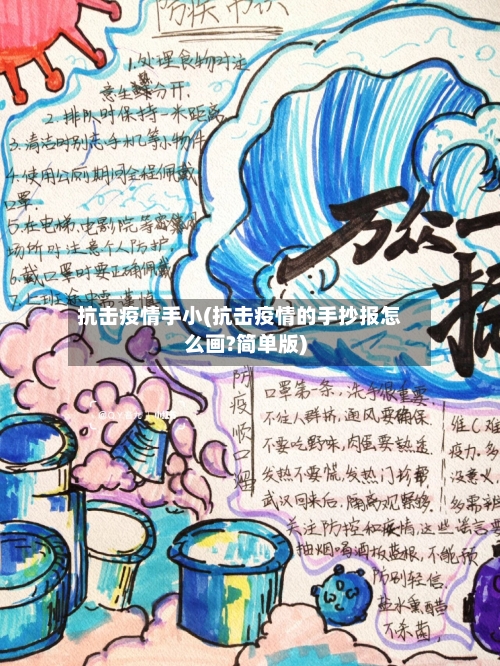 防疾知识
1.处理食物时注
意生熟分开.
2.排队时保持一米距离
3.清洁时别忘手机等小物件
4.使用公厕期间全程佩戴
口罩.
5.在电梯,电影院等密集
场所时注意个人防护
6.戴口罩时要正确佩戴
万众一
抗击疫情手小(抗击疫情的手抄报怎
么画?简单版)
防疫顺口溜
口罩第一条,洗手很重要.
不往人群挤,通风要确保.
不要吃野味,肉蛋要熟透.
发热不要慌,发热门诊
武汉回来后,隔离观察
关注防控和疫情,这些谣言
抽烟喝酒板蓝根,不能预
防别轻信.
盐水熏醋
不杀菌,
维C难
疫力,多
没意义
多需